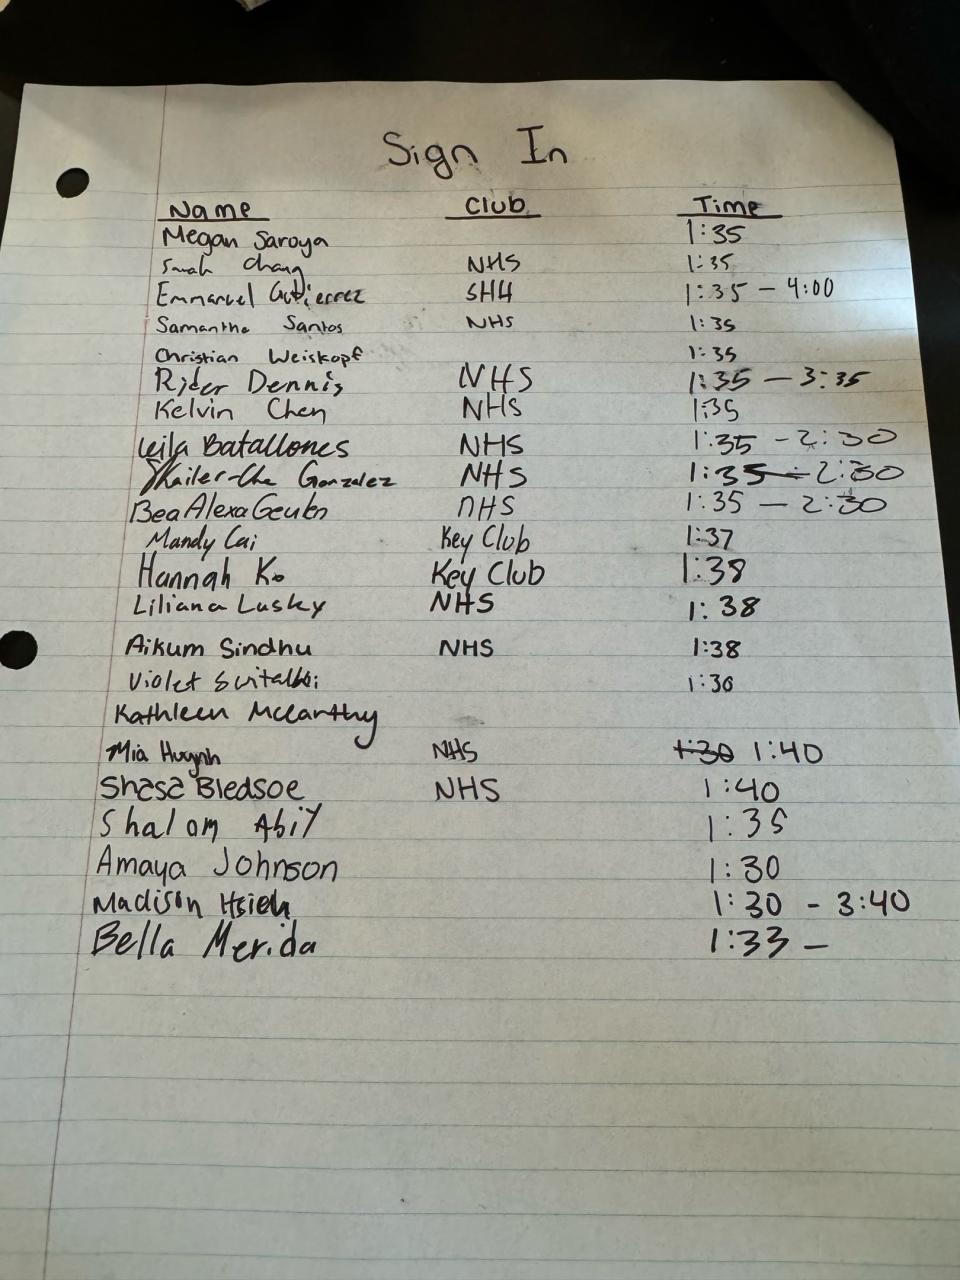 Sign In
Name Club Time
Megan Saroya 1:35
Sarah Chang NHS 1:35
Emmanuel Gutierrez SHH 1:35 - 4:00
Samantha Santos NHS 1:35
Christian Weiskopf 1:35
Rider Dennis NHS 1:35 - 3:35
Kelvin Chen NHS 1:35
Leila Batallones NHS 1:35 - 2:30
Gonzalez NHS 1:35 - 2:30
Bea Alexa NHS 1:35 - 2:30
Mandy Cai Key Club 1:37
Hannah Ko Key Club 1:38
Liliana Lusky NHS 1:38
Aikum Sindhu NHS 1:38
Violet 1:30
Kathleen McCarthy
Mia Huynh NHS 1:30 1:40
Shasa Bledsoe NHS 1:40
Shalom Abiy 1:35
Amaya Johnson 1:30
Madison Hsieh 1:30 - 3:40
Bella Merida 1:33 -